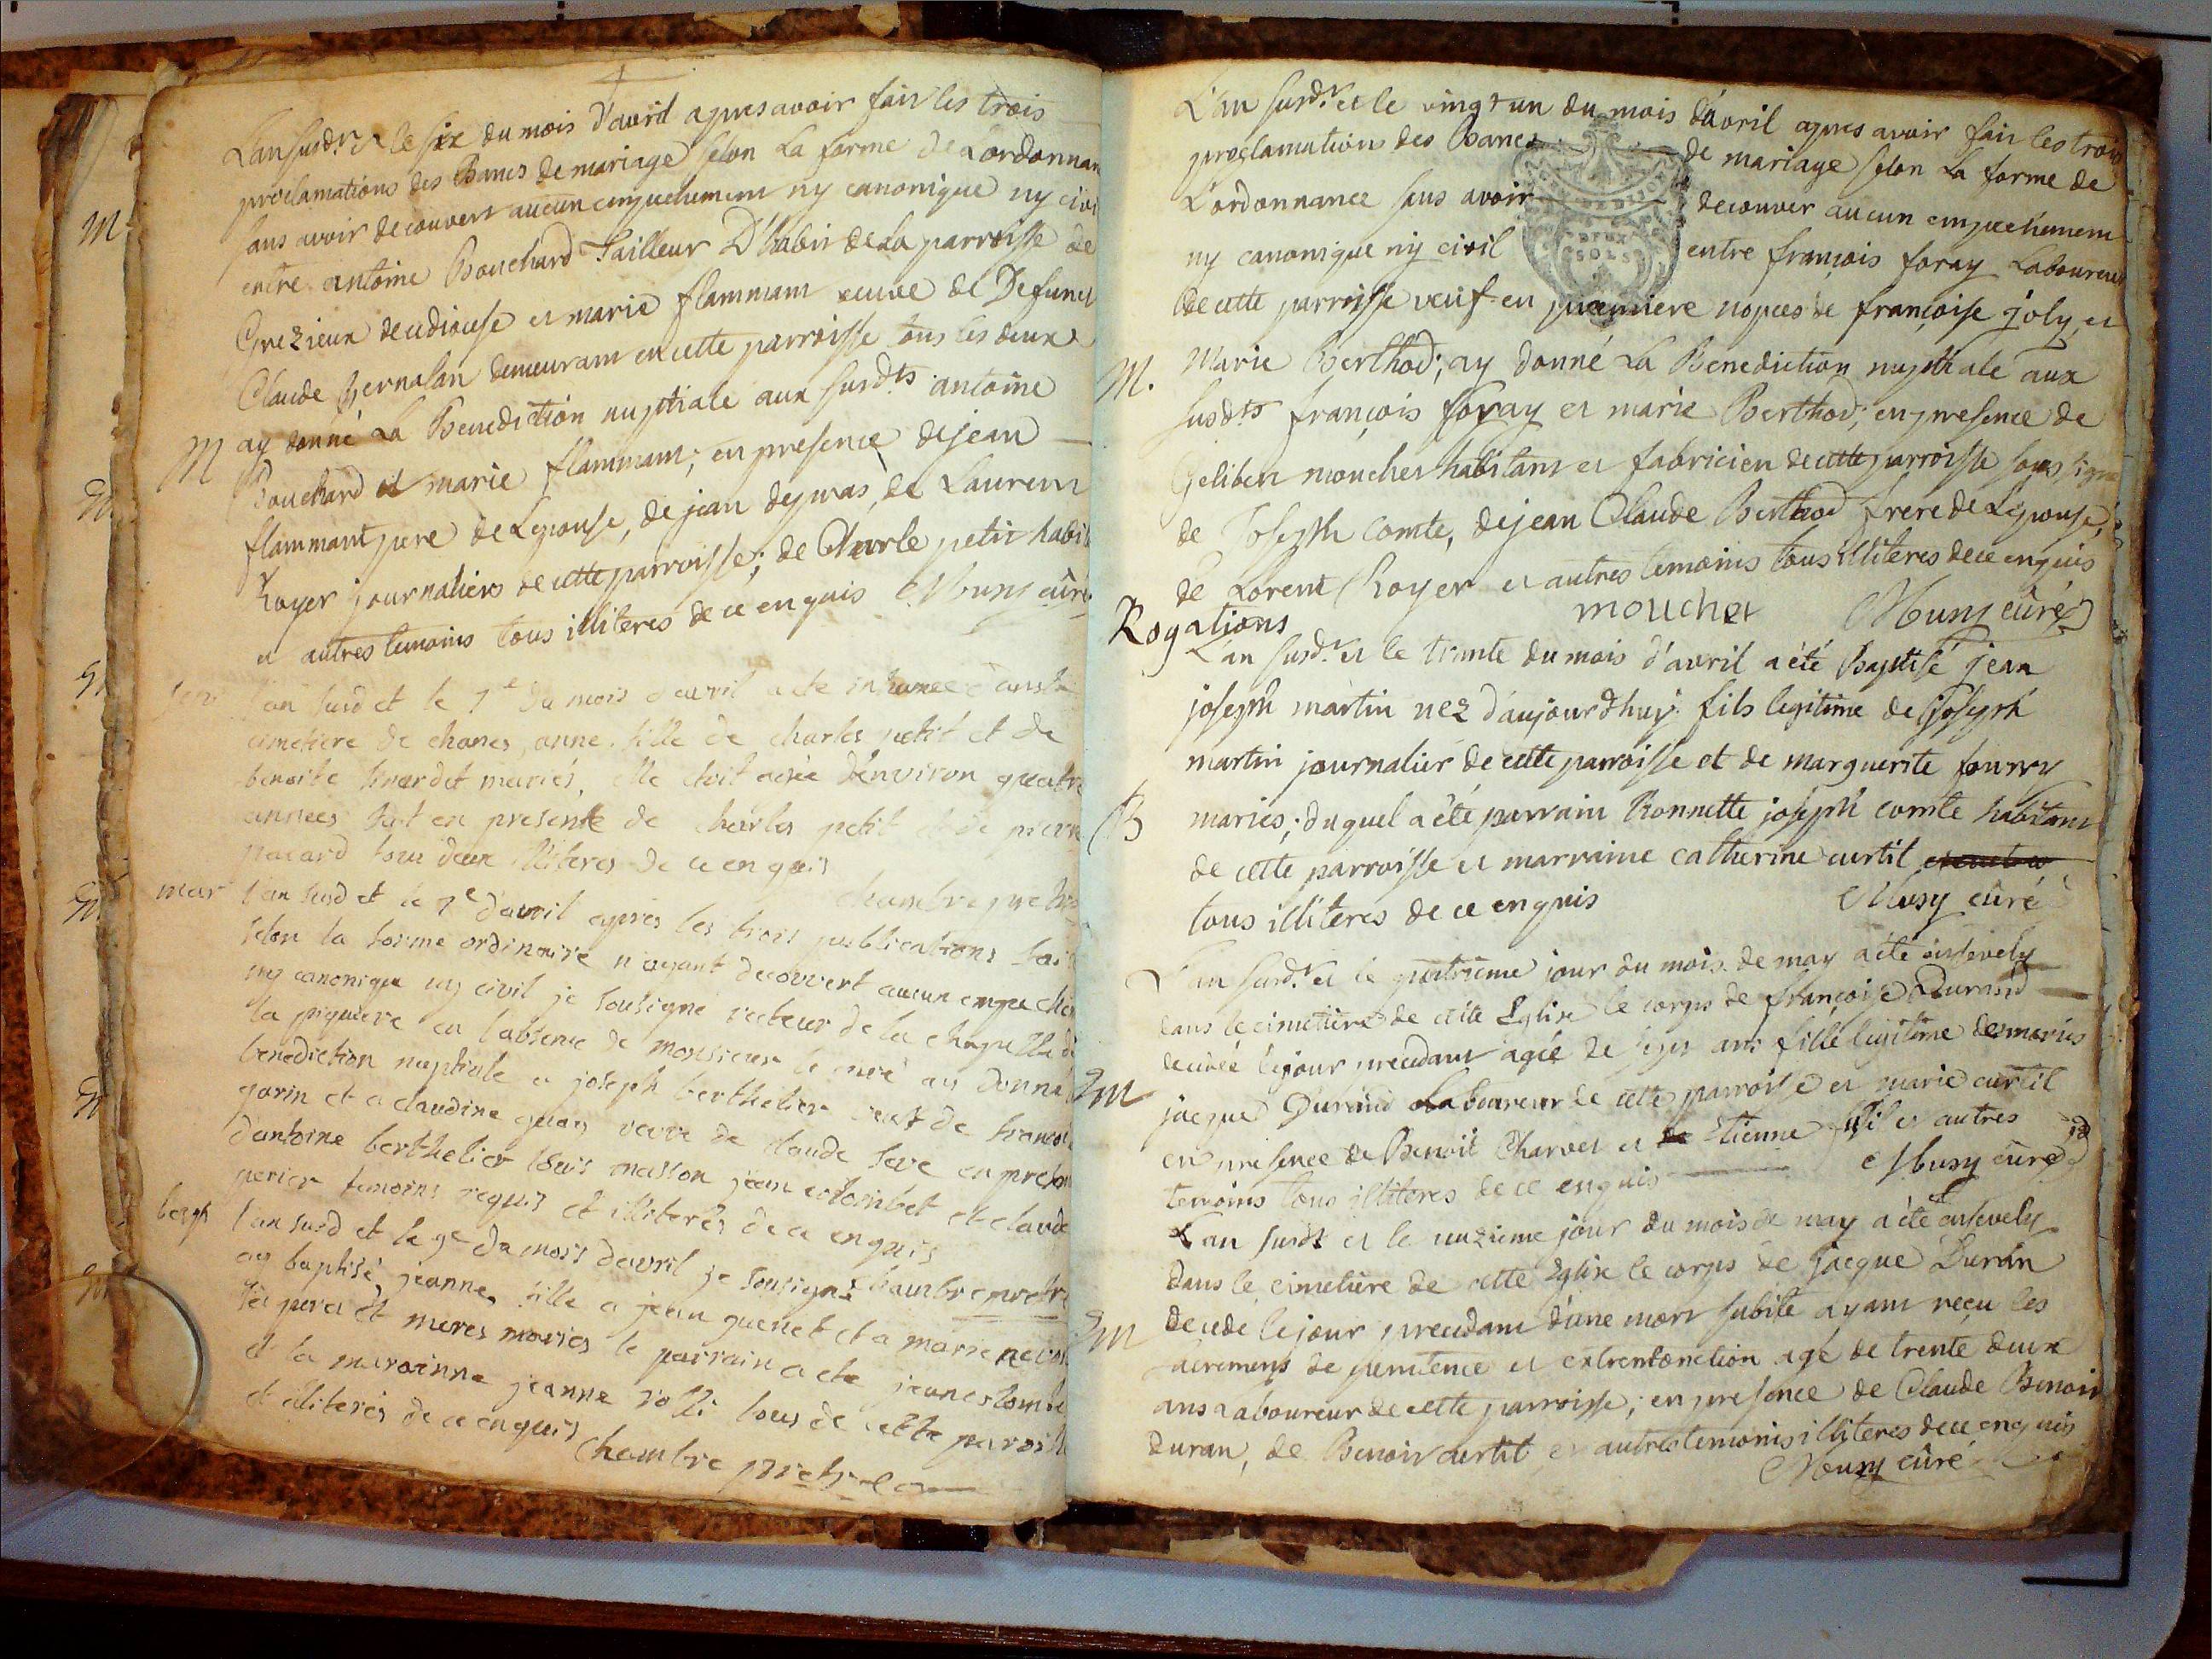 L'an susd.t et le six du mois d'avril apres avoir fait les trois
proclamations des Bancs de mariage selon La forme de L'ordonnan
sans avoir decouvert aucun empechement ny canonique ny civi
entre antoine Bouchard Tailleur D'habit de La parroisse de
Grezieux et marie flammant veuve de Defunct
Claude demeurant en cette parroisse tous les deux
M ay donné La Benediction nuptiale aux susdts antoine
Bouchard et marie flammant; en presence de jean
flammant pere de Lepouse, de jean depras, de Laurent
Royer journaliers de cette parroisse; de Charle petit habit
et autres temoins tous illiteres de ce enquis Musy curé
l'an susd et le 7e du mois d'avril a ete inhumee dans le
cimetiere de chanes, anne fille de charles petit et de
benoite mariés, elle etoit agée d'environ quatre
années fait en presente de charles petit et de pierre
pacard tous deux illiteres de ce enquis
chambre pretre
mar l'an susd et le 7e d'avril apres les trois publications fait
selon la forme ordinaire n'ayant decouvert aucun empechem
ny canonique ny civil je sousigné recteur de la chapelle de
la piquiere en l'absence de monsieur le curé ay donné la
benediction nuptiale a joseph berthelier veuf de francoi
garin et a claudine veuve de claude seve en presen
d'antoine berthelier louis masson jean colombet et claude
perier temoins requis et illiteres de ce enquis
bapt l'an susd et le 9e du mois d'avril je sousigné chambre pretre
ay baptisé, jeanne, fille a jean guenet et a marie
ses peres et meres mariés le parrain a ete jean colombe
et la marainne jeanne tous de cette paroisse
et illiteres de ce enquis
Chambre pretre
L'an susd.t et le vingt un du mois d'avril apres avoir fait les trois
proclamations des Bancs de mariage selon La forme de
L'ordonnance sans avoir decouver aucun empechement
ny canonique ny civil entre françois foray Laboureur
DEUX
SOLS
de cette parroisse veuf en premiere nopces de françoise joly, et
M. Marie Berthod; ay donné La Benediction nuptiale aux
susdts françois foray et marie Berthod; en presence de
Gelibert mouchet habitant et fabricien de cette parroisse sous signé
de Joseph Comte, de jean Claude Berthod frere de L'epouse,
de Lorent Royer et autres temoins tous illiteres de ce enquis
mouchet Musy curé
Rogations
L'an susd.t et le trante du mois d'avril a été Baptisé jean
joseph martin nez d'aujourdhuy fils legitime de joseph
martin journalier de cette parroisse et de marguerite fourry
B mariés; duquel a été parrain Bonnette joseph comte habitant
de cette parroisse et marraine catherine curtil
tous illiteres de ce enquis Musy curé
L'an susd.t et le quatrieme jour du mois de may a été ensevely
dans le cimetiere de cette Eglise le corps de françoise Durand
decedée le jour precedant agée de sept ans fille legitime des mariés
jacque Durand Laboureur de cette parroisse et marie curtil
en presence de Benoit Charvet et Etienne et autres
temoins tous illiteres de ce enquis Musy curé
L'an susdt et le unzieme jour du mois de may a été ensevely
dans le cimetiere de cette Eglise le corps de jacque Duran
decedé le jour precedant d'une mort subite ayant reçu les
sacremens de penitence et extrentonction agé de trente deux
ans Laboureur de cette parroisse; en presence de Claude Benoit
duran, de Benoit curtil et autres temoins illiteres de ce enquis
Musy curé